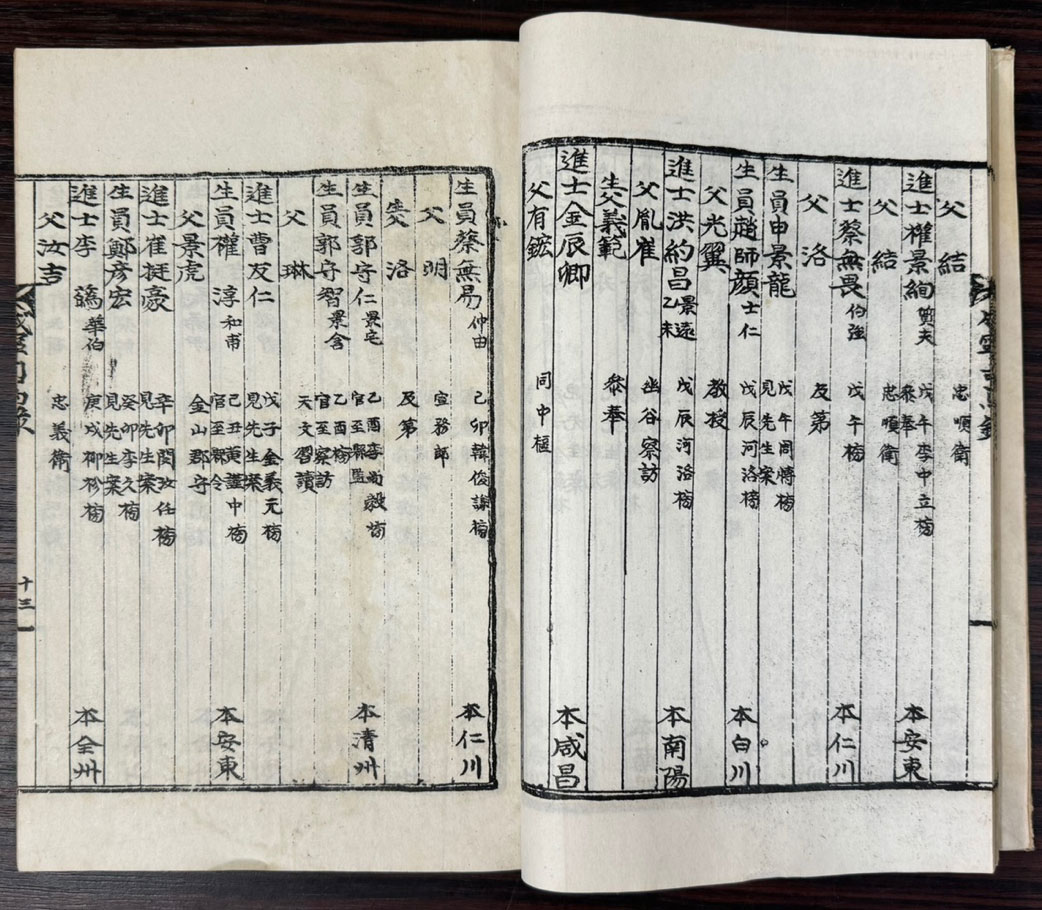 父 結 忠順衛
進士權景絢 質夫 戊午李中立榜 本安東
參奉
父 結 忠順衛
進士蔡無畏 伯強 戊午榜 本仁川
父 洛 及第
生員申景龍 戊午周愽榜
見先生案
生員趙師顔 士仁 戊辰河洛榜 本白川
父光翼 教授
進士洪約昌 景遠 乙未 戊辰河洛榜 本南陽
父胤崔 幽谷察訪
生父義範 叅奉
進士金辰卿 本咸昌
父有鋐 同中樞
生員蔡無易 仲由 己卯韓俊謙榜 本仁川
父 明 宣務郎
生父 洛 及第
生員郭守仁 景宅 乙酉李尚毅榜 本清州
官至縣監
生員郭守智 景含 乙酉榜
官至察訪
父 琳 天文習讀
進士曹友仁 戊子金義元榜
見先生案
生員權 淳 和甫 己丑黃謹中榜 本安東
官至縣令
父景虎 金山郡守
進士崔挺豪 辛卯閔汝任榜
見先生案
生員鄭彦宏 癸卯李久榜
見先生案
進士李 䥴 華伯 庚戌柳袗榜 本全州
父汝吉 忠義衛
十三